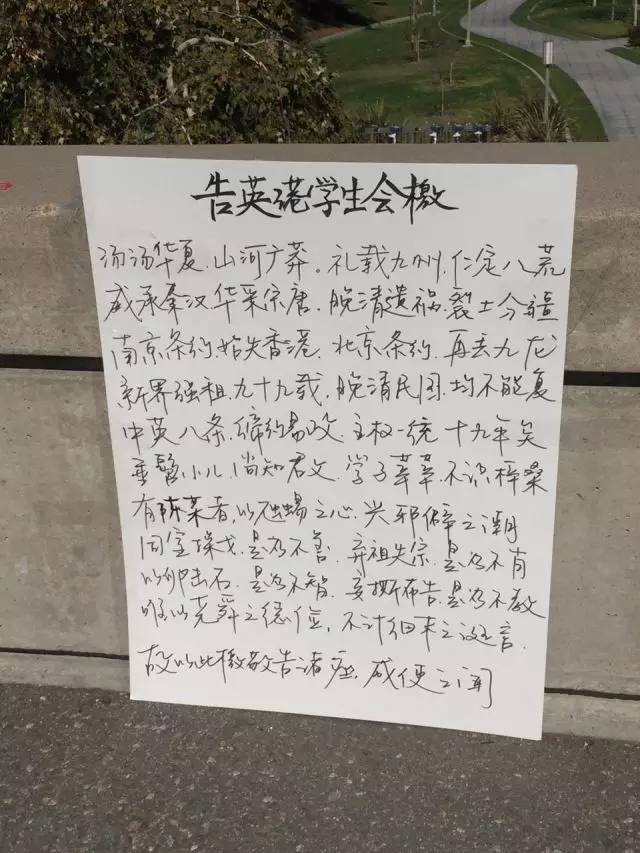 告英港学生会檄
汤汤华夏.山河广莽。礼载九州.仁定八荒
咸承秦汉华采宋唐.晚清遗祸.裂土分疆
南京条约.始失香港.北京条约.再丢九龙
新界强租.九十九载.晚清民国.均不能复
中英八条.缔约易.主权一统十九年矣
垂髫小儿.尚知君父.学子莘莘.不识梓桑
有陈某者.以虺蜴之心.兴邪僻之潮
同室操戈.是为不善.弃祖失宗.是为不肖
以卵击石.是为不智.妄撕布告.是为不教
唯以尧舜之德位,不计细末之诞言.
故以此檄敬告诸.咸使之闻